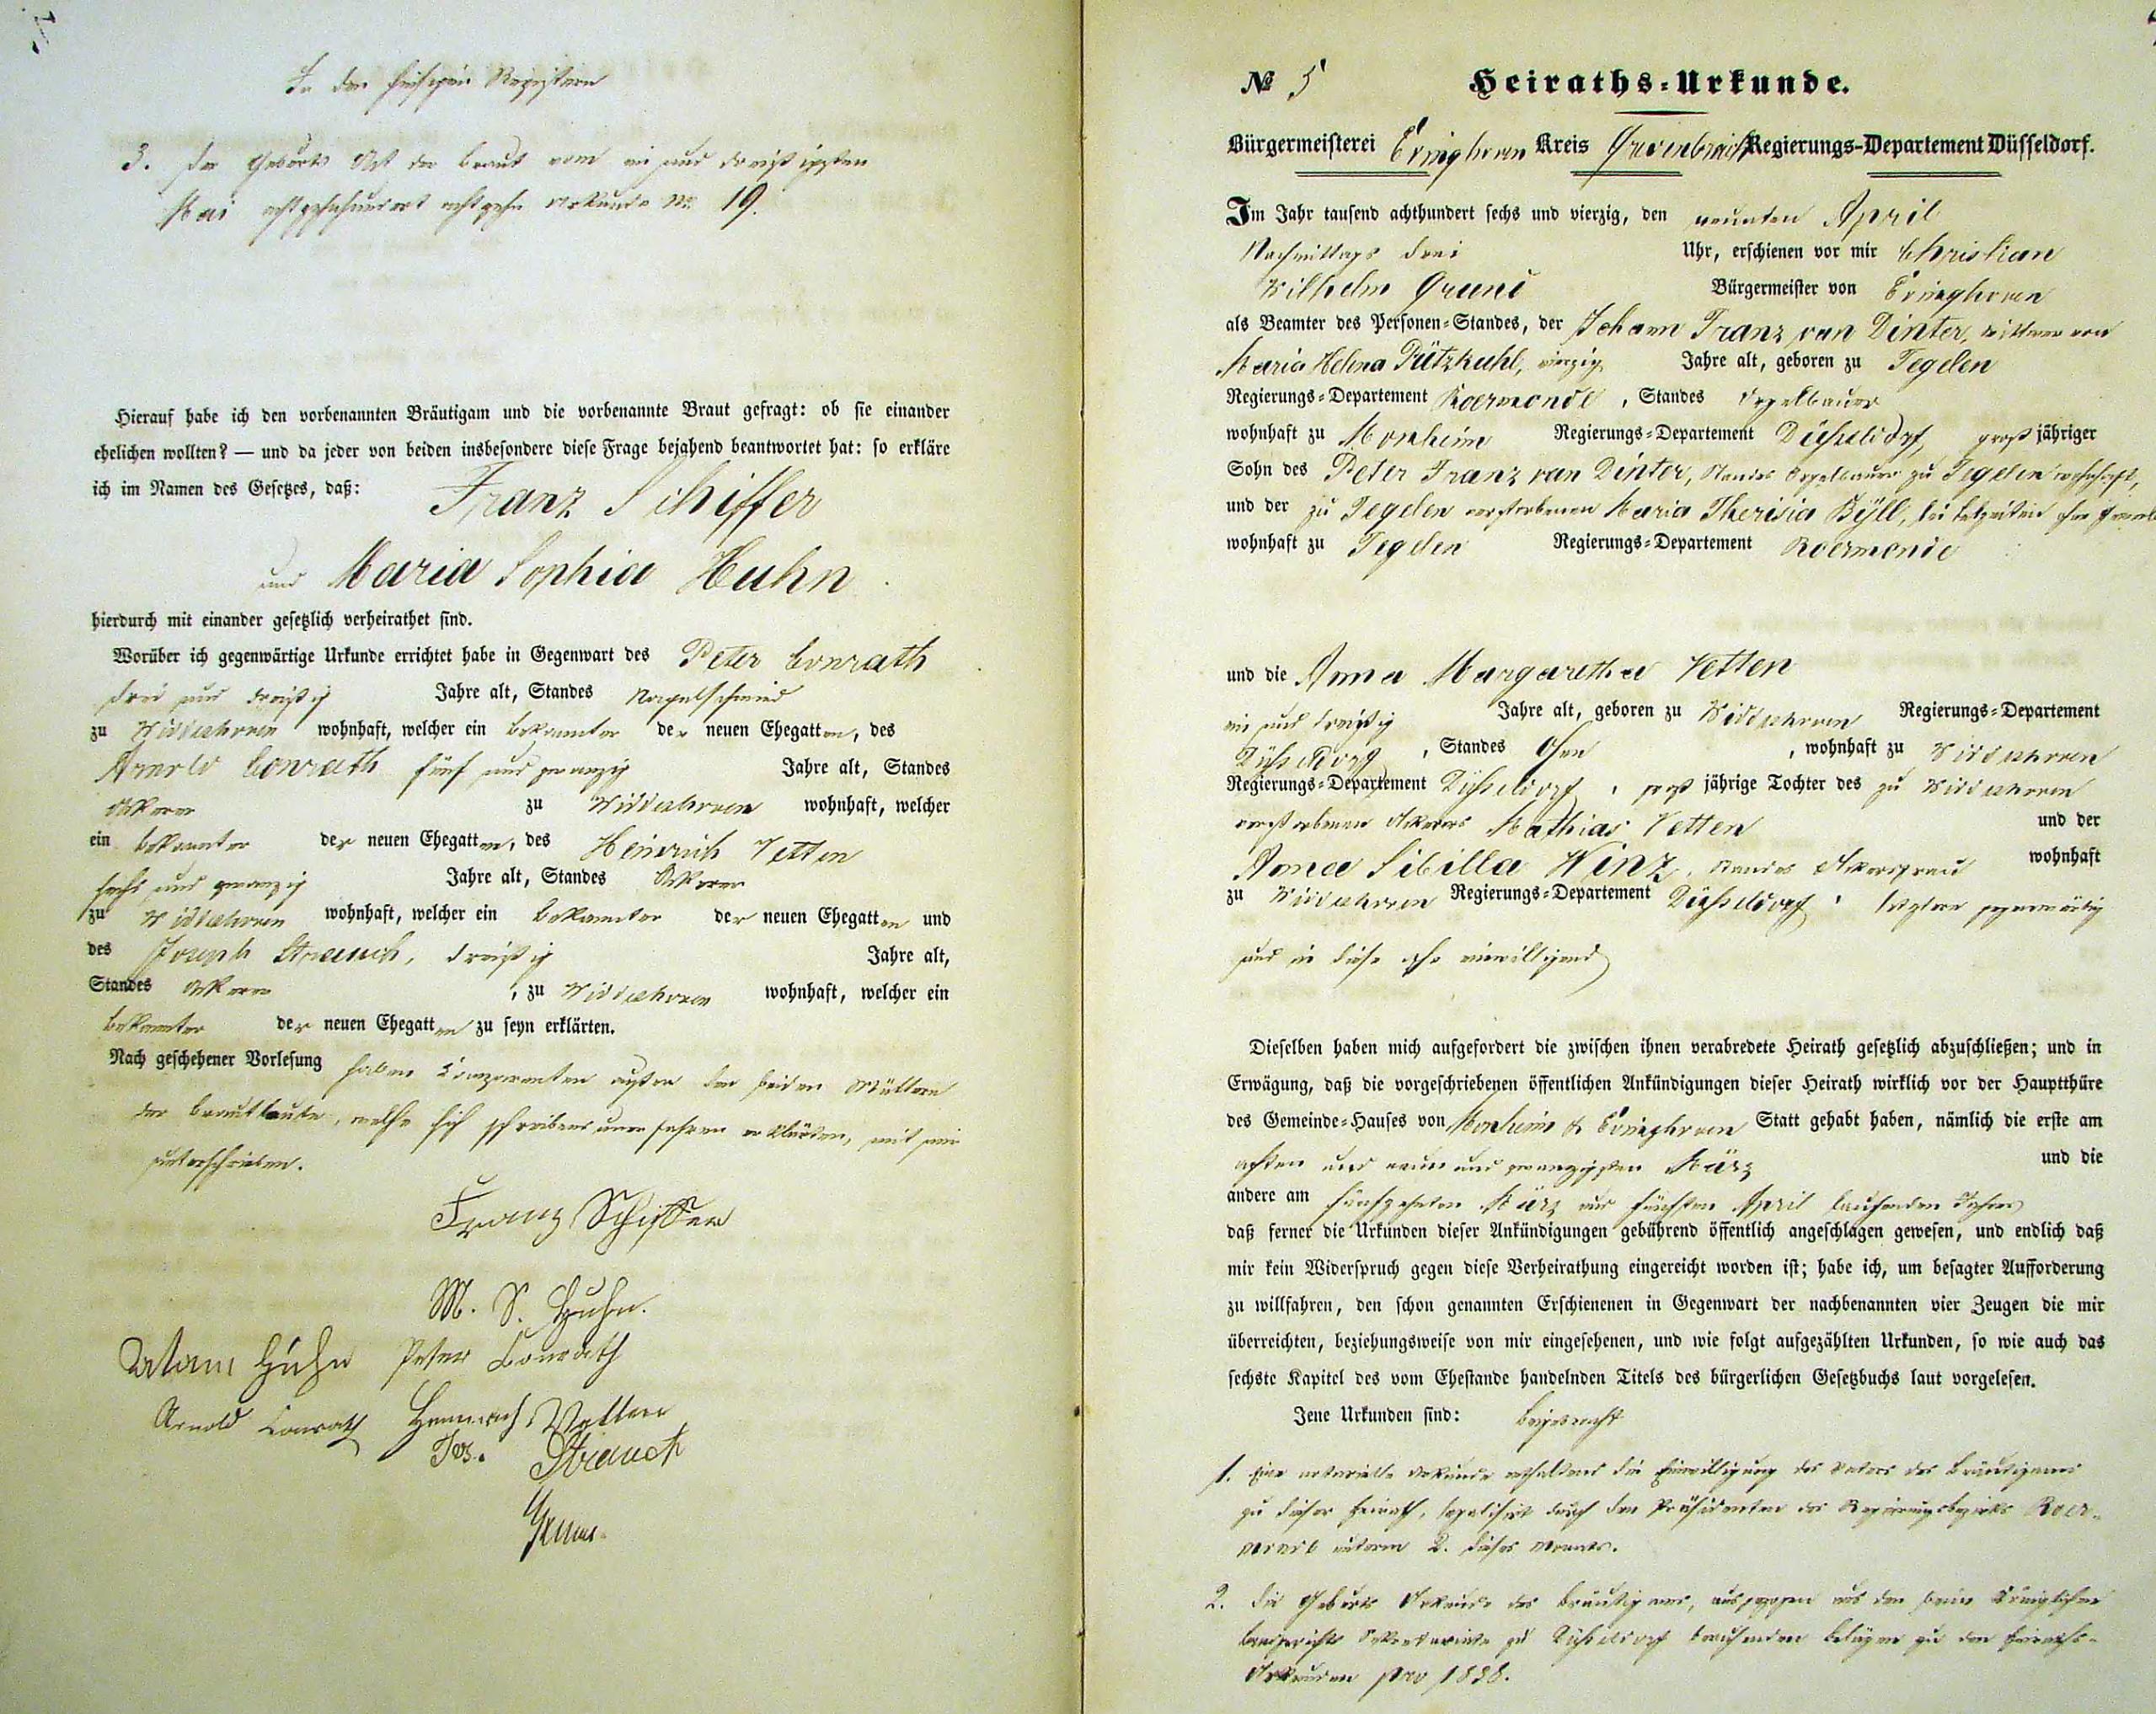 In den hiesigen Registern
3. Der Geburts Act der Braut vom ein und dreißigsten
Mai achtzehnhundert achtzehn Urkunde No 19.
Hierauf habe ich den vorbenannten Bräutigam und die vorbenannte Braut gefragt: ob sie einander
ehelichen wollten? — und da jeder von beiden insbesondere diese Frage bejahend beantwortet hat: so erkläre
ich im Namen des Gesetzes, daß: Franz Schiffer
und Maria Sophia Huhn
hierdurch mit einander gesetzlich verheirathet sind.
Worüber ich gegenwärtige Urkunde errichtet habe in Gegenwart des Peter Conrath
drei und dreißig Jahre alt, Standes Nagelschmied
zu Widdeshoven wohnhaft, welcher ein bekannter der neuen Ehegatten, des
Arnold Conrath fünf und zwanzig Jahre alt, Standes
Ackerer zu Widdeshoven wohnhaft, welcher
ein bekannter der neuen Ehegatten, des Heinrich Vetten
sechs und zwanzig Jahre alt, Standes Ackerer
zu Widdeshoven wohnhaft, welcher ein bekannter der neuen Ehegatten und
des Joseph Strauch, dreißig Jahre alt,
Standes Ackerer, zu Widdeshoven wohnhaft, welcher ein
bekannter der neuen Ehegatten zu seyn erklärten.
Nach geschehener Vorlesung haben Comparenten außer den beiden Müttern
der Brautleute, welche sich schreibens unerfahren erklärten, mit mir
unterschrieben.
Franz Schiffer
M. S. Huhn.
Adam Huhn Peter Conrath
Arnold Conrath Heinrich Vetten
Jos. Strauch
Gruni
№ 5 Heiraths-Urkunde.
Bürgermeisterei Evinghoven Kreis Grevenbroich Regierungs-Departement Düsseldorf.
Im Jahr tausend achthundert sechs und vierzig, den neunten April
Nachmittags drei Uhr, erschienen vor mir Christian
Wilhelm Gruni Bürgermeister von Evinghoven
als Beamter des Personen-Standes, der Johann Franz van Dinter, Wittwer von
Maria Helena Pützkuhl, vierzig Jahre alt, geboren zu Tegelen
Regierungs-Departement Roermonde, Standes
wohnhaft zu Monheim Regierungs-Departement Düsseldorf, groß jähriger
Sohn des Peter Franz van Dinter, Standes zu Tegelen wohnhaft,
und der zu Tegelen verstorbenen Maria Theresia Byll, bei Lebzeiten
wohnhaft zu Tegelen Regierungs-Departement Roermonde
und die Anna Margaretha Vetten
ein und dreißig Jahre alt, geboren zu Widdeshoven Regierungs-Departement
Düsseldorf, Standes Ohne, wohnhaft zu Widdeshoven
Regierungs-Departement Düsseldorf, groß jährige Tochter des zu Widdeshoven
verstorbenen Ackerers Mathias Vetten und der
Anna Sibilla Winz, Standes Ackersfrau wohnhaft
zu Widdeshoven Regierungs-Departement Düsseldorf, letztere gegenwärtig
und in diese Ehe einwilligend
Dieselben haben mich aufgefordert die zwischen ihnen verabredete Heirath gesetzlich abzuschließen; und in
Erwägung, daß die vorgeschriebenen öffentlichen Ankündigungen dieser Heirath wirklich vor der Hauptthüre
des Gemeinde-Hauses von Monheim & Evinghoven Statt gehabt haben, nämlich die erste am
achten und neun und zwanzigsten März und die
andere am fünfzehnten März und fünften April laufenden Jahres
daß ferner die Urkunden dieser Ankündigungen gebührend öffentlich angeschlagen gewesen, und endlich daß
mir kein Widerspruch gegen diese Verheirathung eingereicht worden ist; habe ich, um besagter Aufforderung
zu willfahren, den schon genannten Erschienenen in Gegenwart der nachbenannten vier Zeugen die mir
überreichten, beziehungsweise von mir eingesehenen, und wie folgt aufgezählten Urkunden, so wie auch das
sechste Kapitel des vom Ehestande handelnden Titels des bürgerlichen Gesetzbuchs laut vorgelesen.
Jene Urkunden sind: beigebracht
1. Eine notarielle Urkunde enthaltend die Einwilligung des Vaters des Bräutigams
zu dieser Heirath, legalisirt durch den Präsidenten des Regierungsbezirks Roer-
monde unterm 2. dieses Monats.
2. Die Geburts Urkunde des Bräutigams, aus den beim Königlichen
Landgerichts Sekretariate zu Düsseldorf beruhenden Belägen zu den Heiraths-
Urkunden pro 1838.